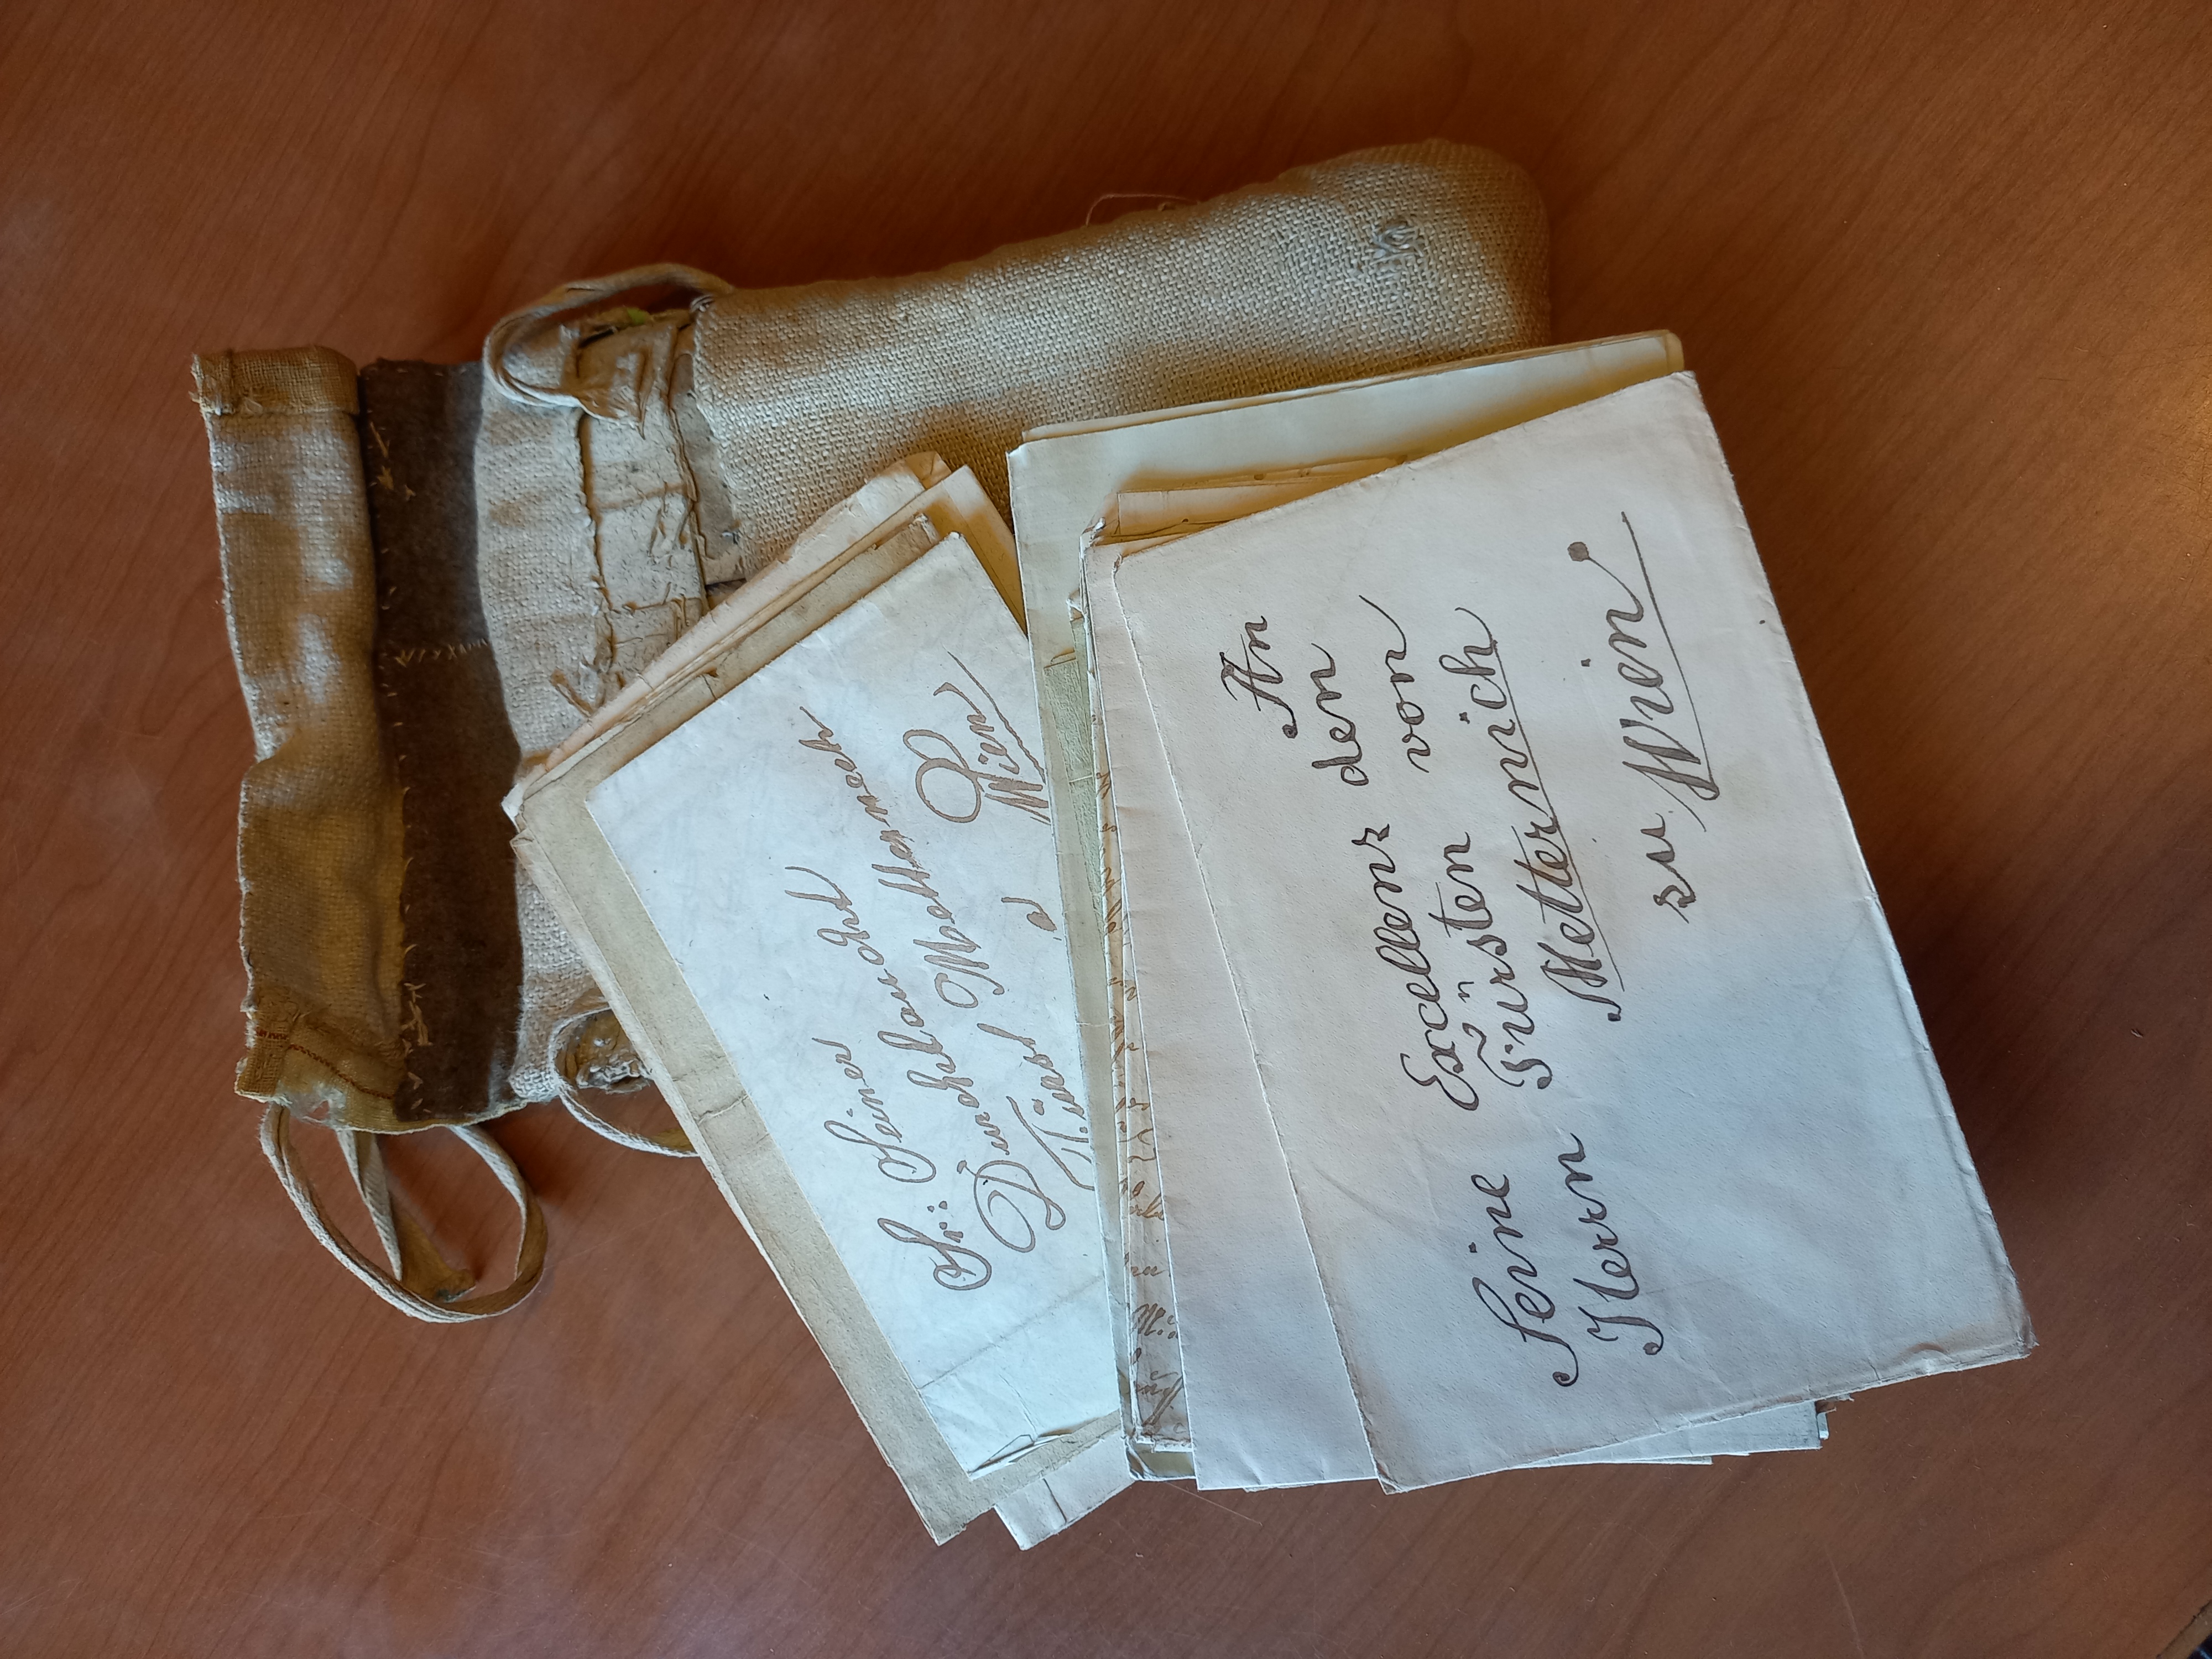 Seiner
Durchlaucht
Fürst Metternich
à Wien
An
Seine Excellenz dem
Herrn Fürsten von
Metternich
zu Wien.